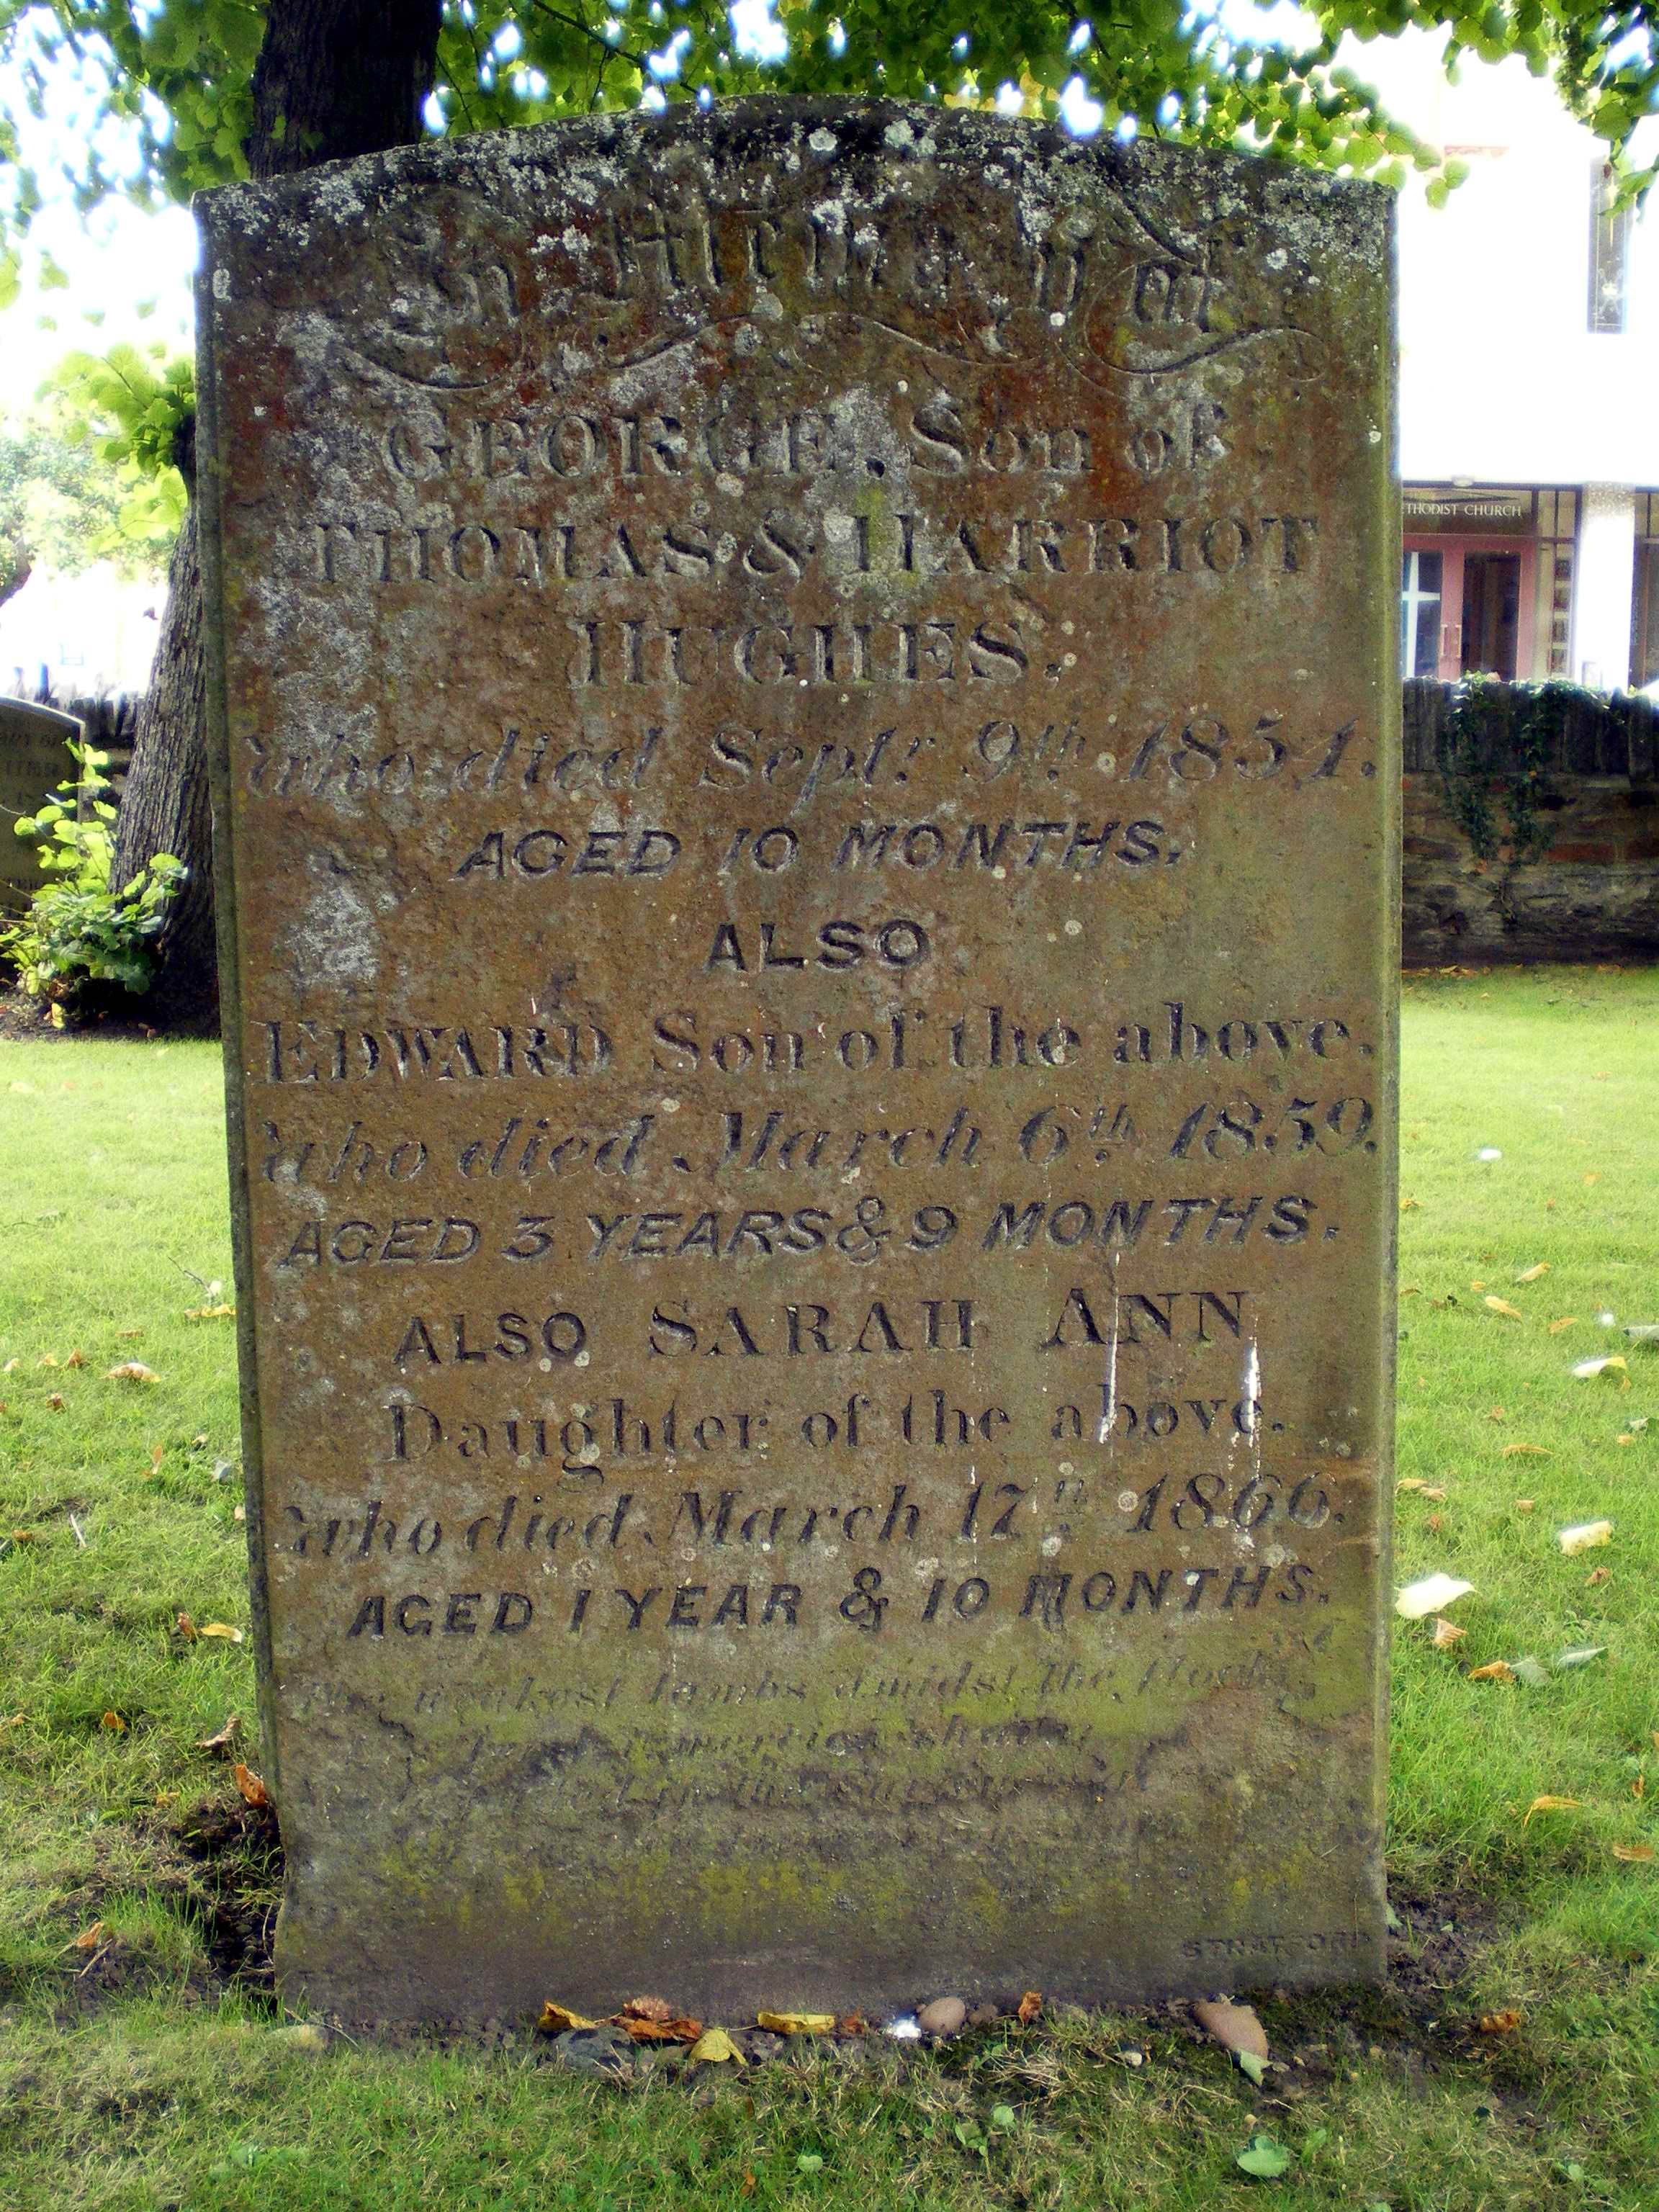 In Memory of
GEORGE, Son of
THOMAS & HARRIOT
HUGHES,
who died Septr. 9th 1851.
AGED 10 MONTHS.
ALSO
EDWARD Son of the above.
who died March 6th 1859.
AGED 3 YEARS & 9 MONTHS.
ALSO SARAH ANN
Daughter of the above.
who died March 17th 1866.
AGED 1 YEAR & 10 MONTHS.
The weakest lambs amidst the flock
STRATFORD
METHODIST CHURCH